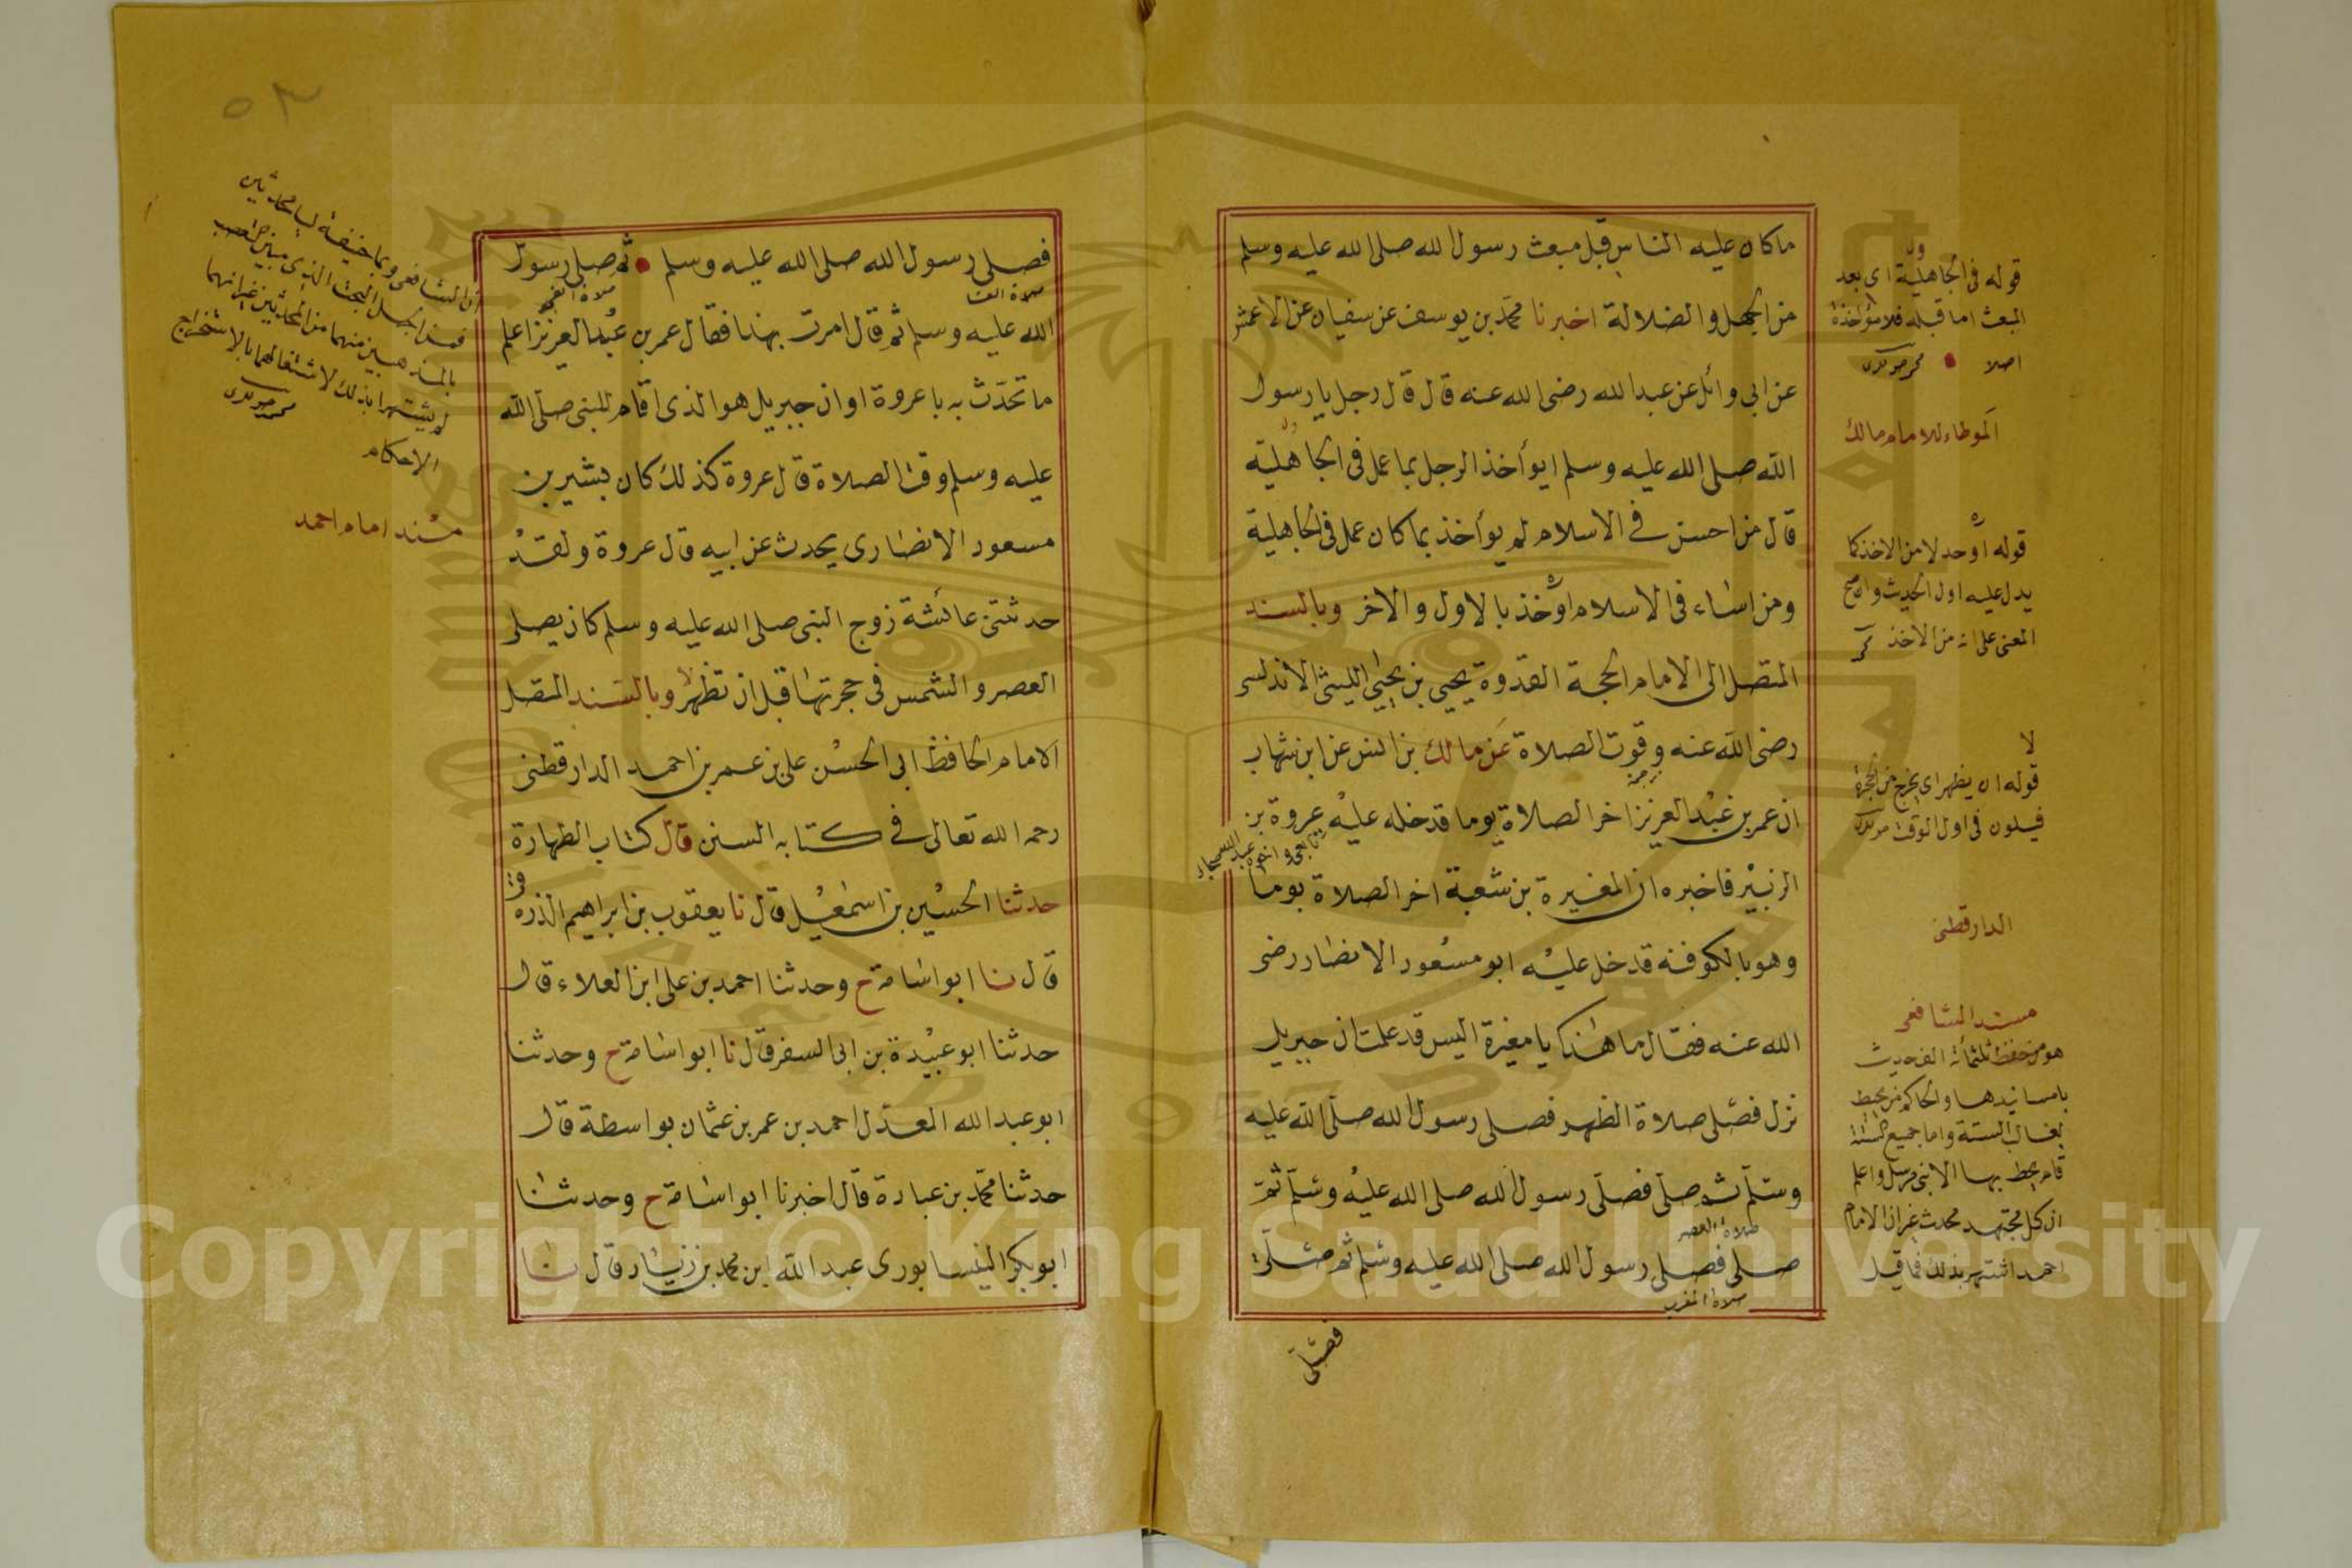 ما كان عليه الناس قبل مبعث رسول الله صلى الله عليه وسلم
من الجهل والضلالة اخبرنا محمد بن يوسف عن سفيان عن الاعمش
عن ابي وائل عن عبد الله رضى الله عنه قال قال رجل يا رسول
الله صلى الله عليه وسلم ايوأخذ الرجل بما عمل فى الجاهلية
قال من احسن في الاسلام لم يوأخذ بما كان عمل فى الجاهلية
ومن اساء فى الاسلام اوخذ بالاول والاخر وبالسند
المتصل الى الامام الحجة القدوة يحيى بن يحيى الليثى الاندلسى
رضى الله عنه وقوت الصلاة عن مالك بن انس عن ابن شهاب
ان عمر بن عبد العزيز اخر الصلاة يوما فدخل عليه عروة بن
الزبير فاخبره ان المغيرة بن شعبة اخر الصلاة يوما
وهو بالكوفة فدخل عليه ابو مسعود الانصار رضى
الله عنه فقال ما هذا يا مغيرة اليس قد علمت ان جبريل
نزل فصلى صلاة الظهر فصلى رسول الله صلى الله عليه
وسلم ثم صلى فصلى رسول الله صلى الله عليه وسلم ثم
صلاة العصر
صلى فصلى رسول الله صلى الله عليه وسلم ثم صلى
صلاة المغرب
فصلى
قوله فى الجاهلية اى بعد
البعث اما قبله فلا مؤاخذة
اصلا
الموطاء للامام مالك
قوله اوخد لا من الاخذ كما
يدل عليه اول الحديث واصح
المعنى على انه من الاخذ
لا
قوله ان يظهر اى يخرج من الحجرة
فيكون فى اول الوقت
الدارقطنى
مسند الشافعى
هو من حفظ ثلثمائة الف حديث
بامسانيدها والحاكم من يحيط
بغالب السنة واما جميع السنة
فلم يحط بها الا نبى مرسل واعلم
ان كل مجتهد محدث غير ان الامام
احمد اشتهر بذلك فما قيل
٥٢
ان الشافعى وابا حنيفة ليسا محدثين
لم يشتهرا بذلك لاشتغالهما بالاستخراج
الاحكام
مسند امام احمد
فصلى رسول الله صلى الله عليه وسلم ثم صلى رسول
صلاة العشا صلاة الفجر
الله عليه وسلم ثم قال امرت بهذا فقال عمر بن عبد العزيز اعلم
ما تحدث به يا عروة او ان جبريل هو الذى اقام للنبى صلى الله
عليه وسلم وقت الصلاة قال عروة كذلك كان بشير بن
مسعود الانصارى يحدث عن ابيه قال عروة ولقد
حدثتنى عائشة زوج النبى صلى الله عليه وسلم كان يصلى
العصر والشمس فى حجرتها قبل ان تظهر وبالسند المتصل
الامام الحافظ ابى الحسن على بن عمر بن احمد الدارقطنى
رحمه الله تعالى في كتابه السنن قال كتاب الطهارة
حدثنا الحسين بن اسمعيل قال نا يعقوب بن ابراهيم الدورق
قال نا ابو اسامة ح وحدثنا احمد بن على ابن العلاء قال
حدثنا ابو عبيدة بن ابى السفر قال نا ابو اسامة ح وحدثنا
ابو عبد الله المعدل احمد بن عمر بن عثمان بواسطة قال
حدثنا محمد بن عبادة قال اخبرنا ابو اسامة ح وحدثنا
ابو بكر النيسابورى عبد الله ابن محمد بن زياد قال نا
Copyright © King Saud University